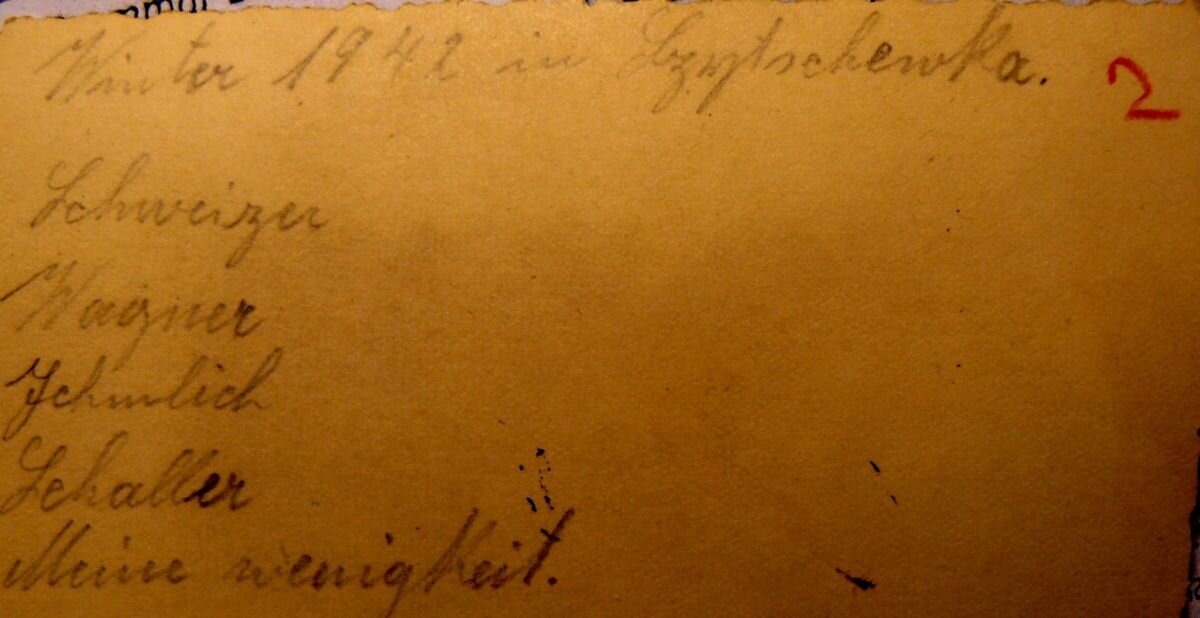 Winter 1942 in Szytschewka. 2
Schweizer
Wagner
Jehmlich
Schaller
Meine wenigkeit.